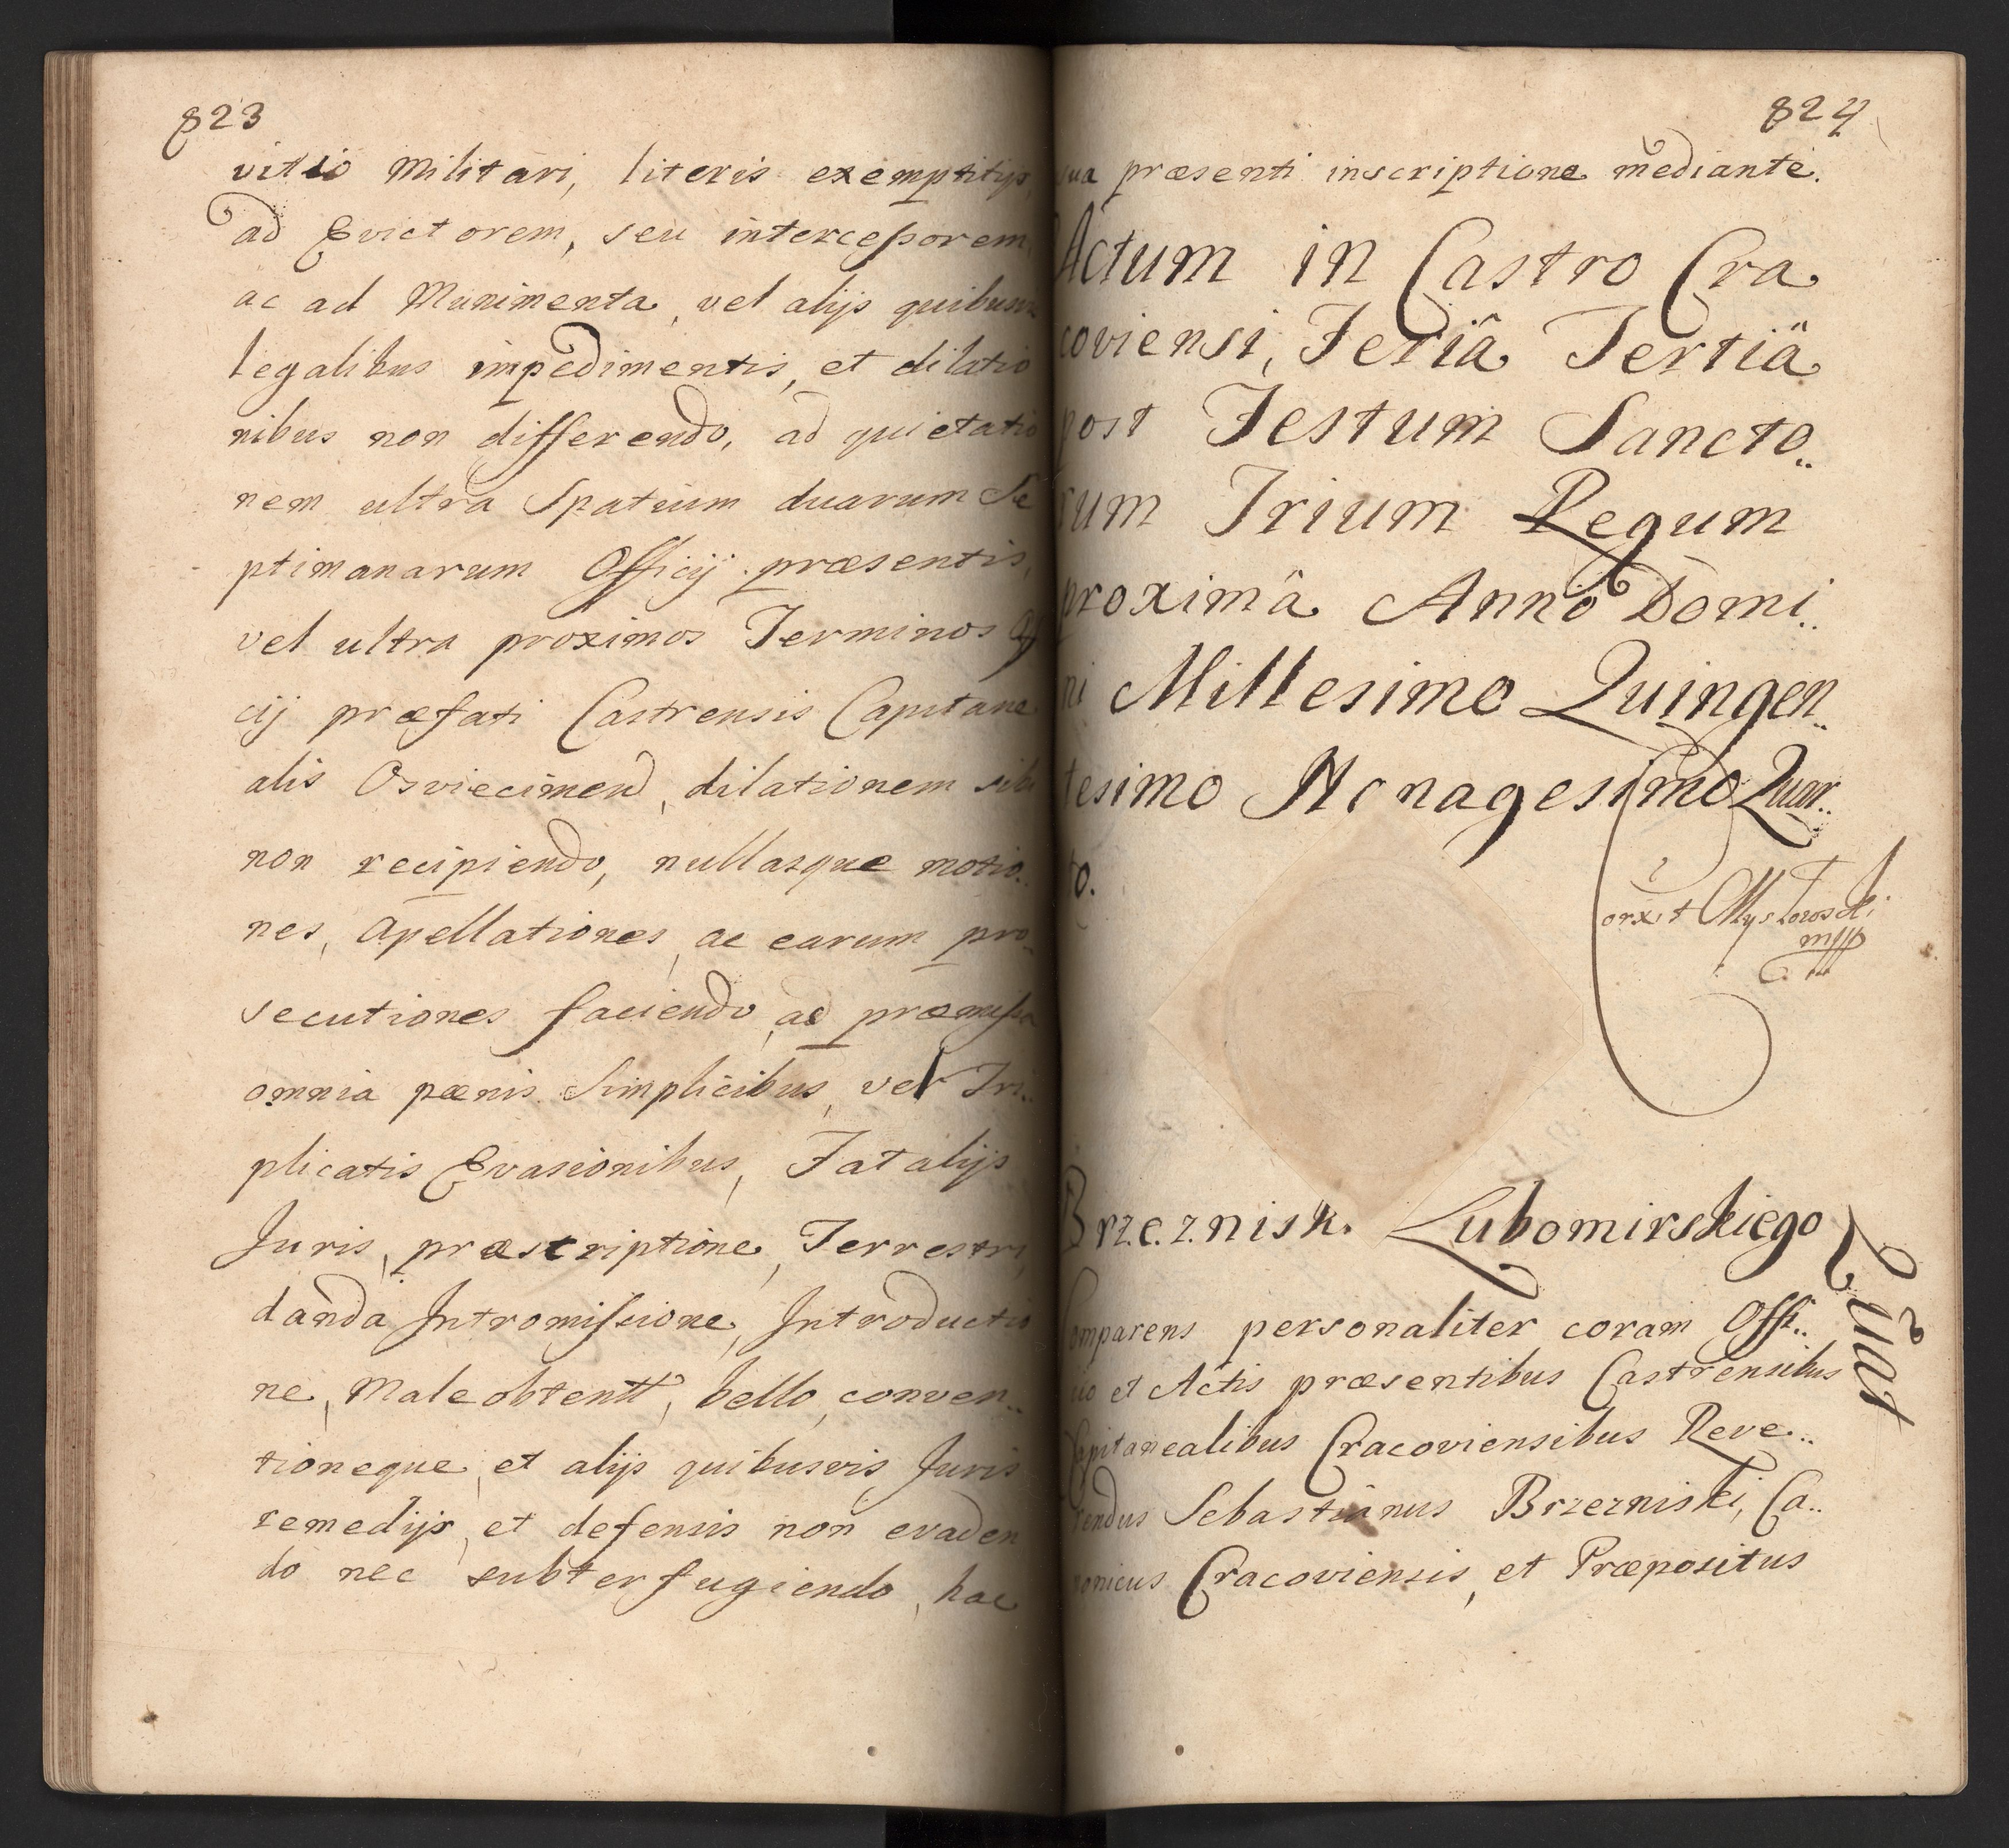 823
vitio Militari, literis exemptitijs,
ad Evictorem, seu intercessorem,
ac ad Munimenta, vel alijs quibusvis
legalibus impedimentis, et dilatio
nibus non differendo, ad quietatio
nem ultra Spatium duarum Se
ptimanarum Officij praesentis,
vel ultra proximos Terminos Offi
cij praefati Castrensis Capitane
alis Osviecimen, dilationem sibi
non recipiendo, nullasque motio..
nes, Apellationes, ac earum pro..
secutiones faciendo, ad praemissa
omnia paenis Simplicibus, vel Tri..
plicatis Evasionibus, Fatalijs
Juris, praescriptione, Terrestri,
danda Intromissione, Introductio
ne, Maleobtent, bello, conven..
tioneque, et alijs quibusvis Juris
remedijs, et defensis non evaden
do nec subterfugiendo, hac
824
sua praesenti inscriptione mediante.
Actum in Castro Cra
coviensi, Feriâ Tertiâ
post Festum Sancto..
rum Trium Regum
proximâ Anno Domi..
ni Millesimo Quingen..
tesimo Nonagesimo Quar..
to.
Brzeznisk. Lubomirskiego
Quiet
Comparens personaliter coram Offi..
cio et Actis praesentibus Castrensibus
Capitanealibus Cracoviensibus Reve..
rendus Sebastianus Brzezniski, Ca..
nonicus Cracoviensis, et Praepositus